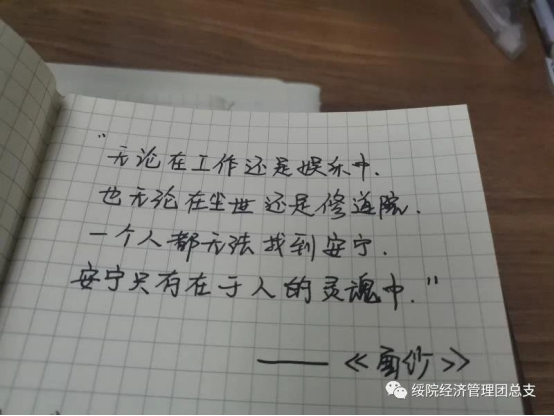 "无论在工作还是娱乐中.
也无论在尘世还是修道院.
一个人都无法找到安宁.
安宁只有在于人的灵魂中."
——《面纱》
绥院经济管理团总支